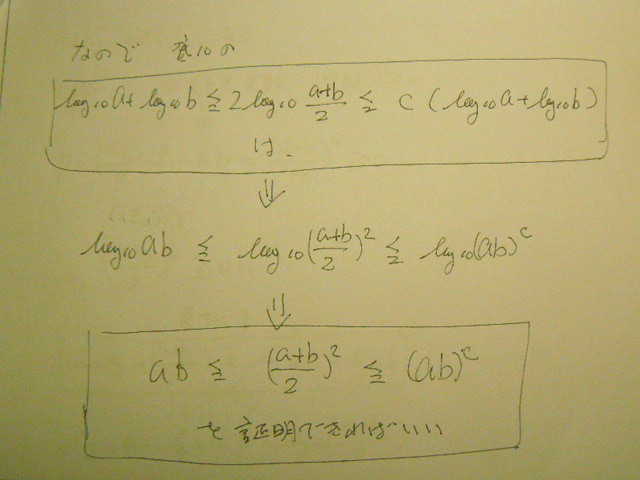 なので 底10の
log₁₀a + log₁₀b ≦ 2log₁₀ (a+b)/2 ≦ c (log₁₀a + log₁₀b)
は、
⇓
log₁₀ab ≦ log₁₀((a+b)/2)² ≦ log₁₀(ab)ᶜ
⇓
ab ≦ ((a+b)/2)² ≦ (ab)ᶜ
を証明できればいい